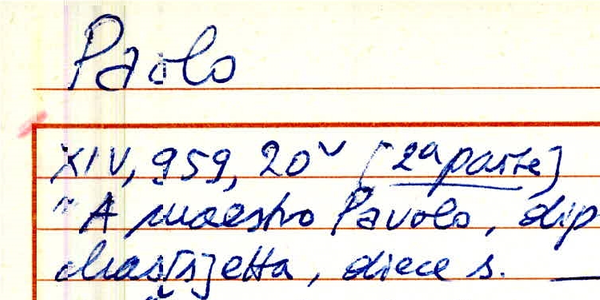 Paolo
XIV, 959, 20v [2a parte]
"A maestro Pavolo, dip
Mas[s]etta, diece s.